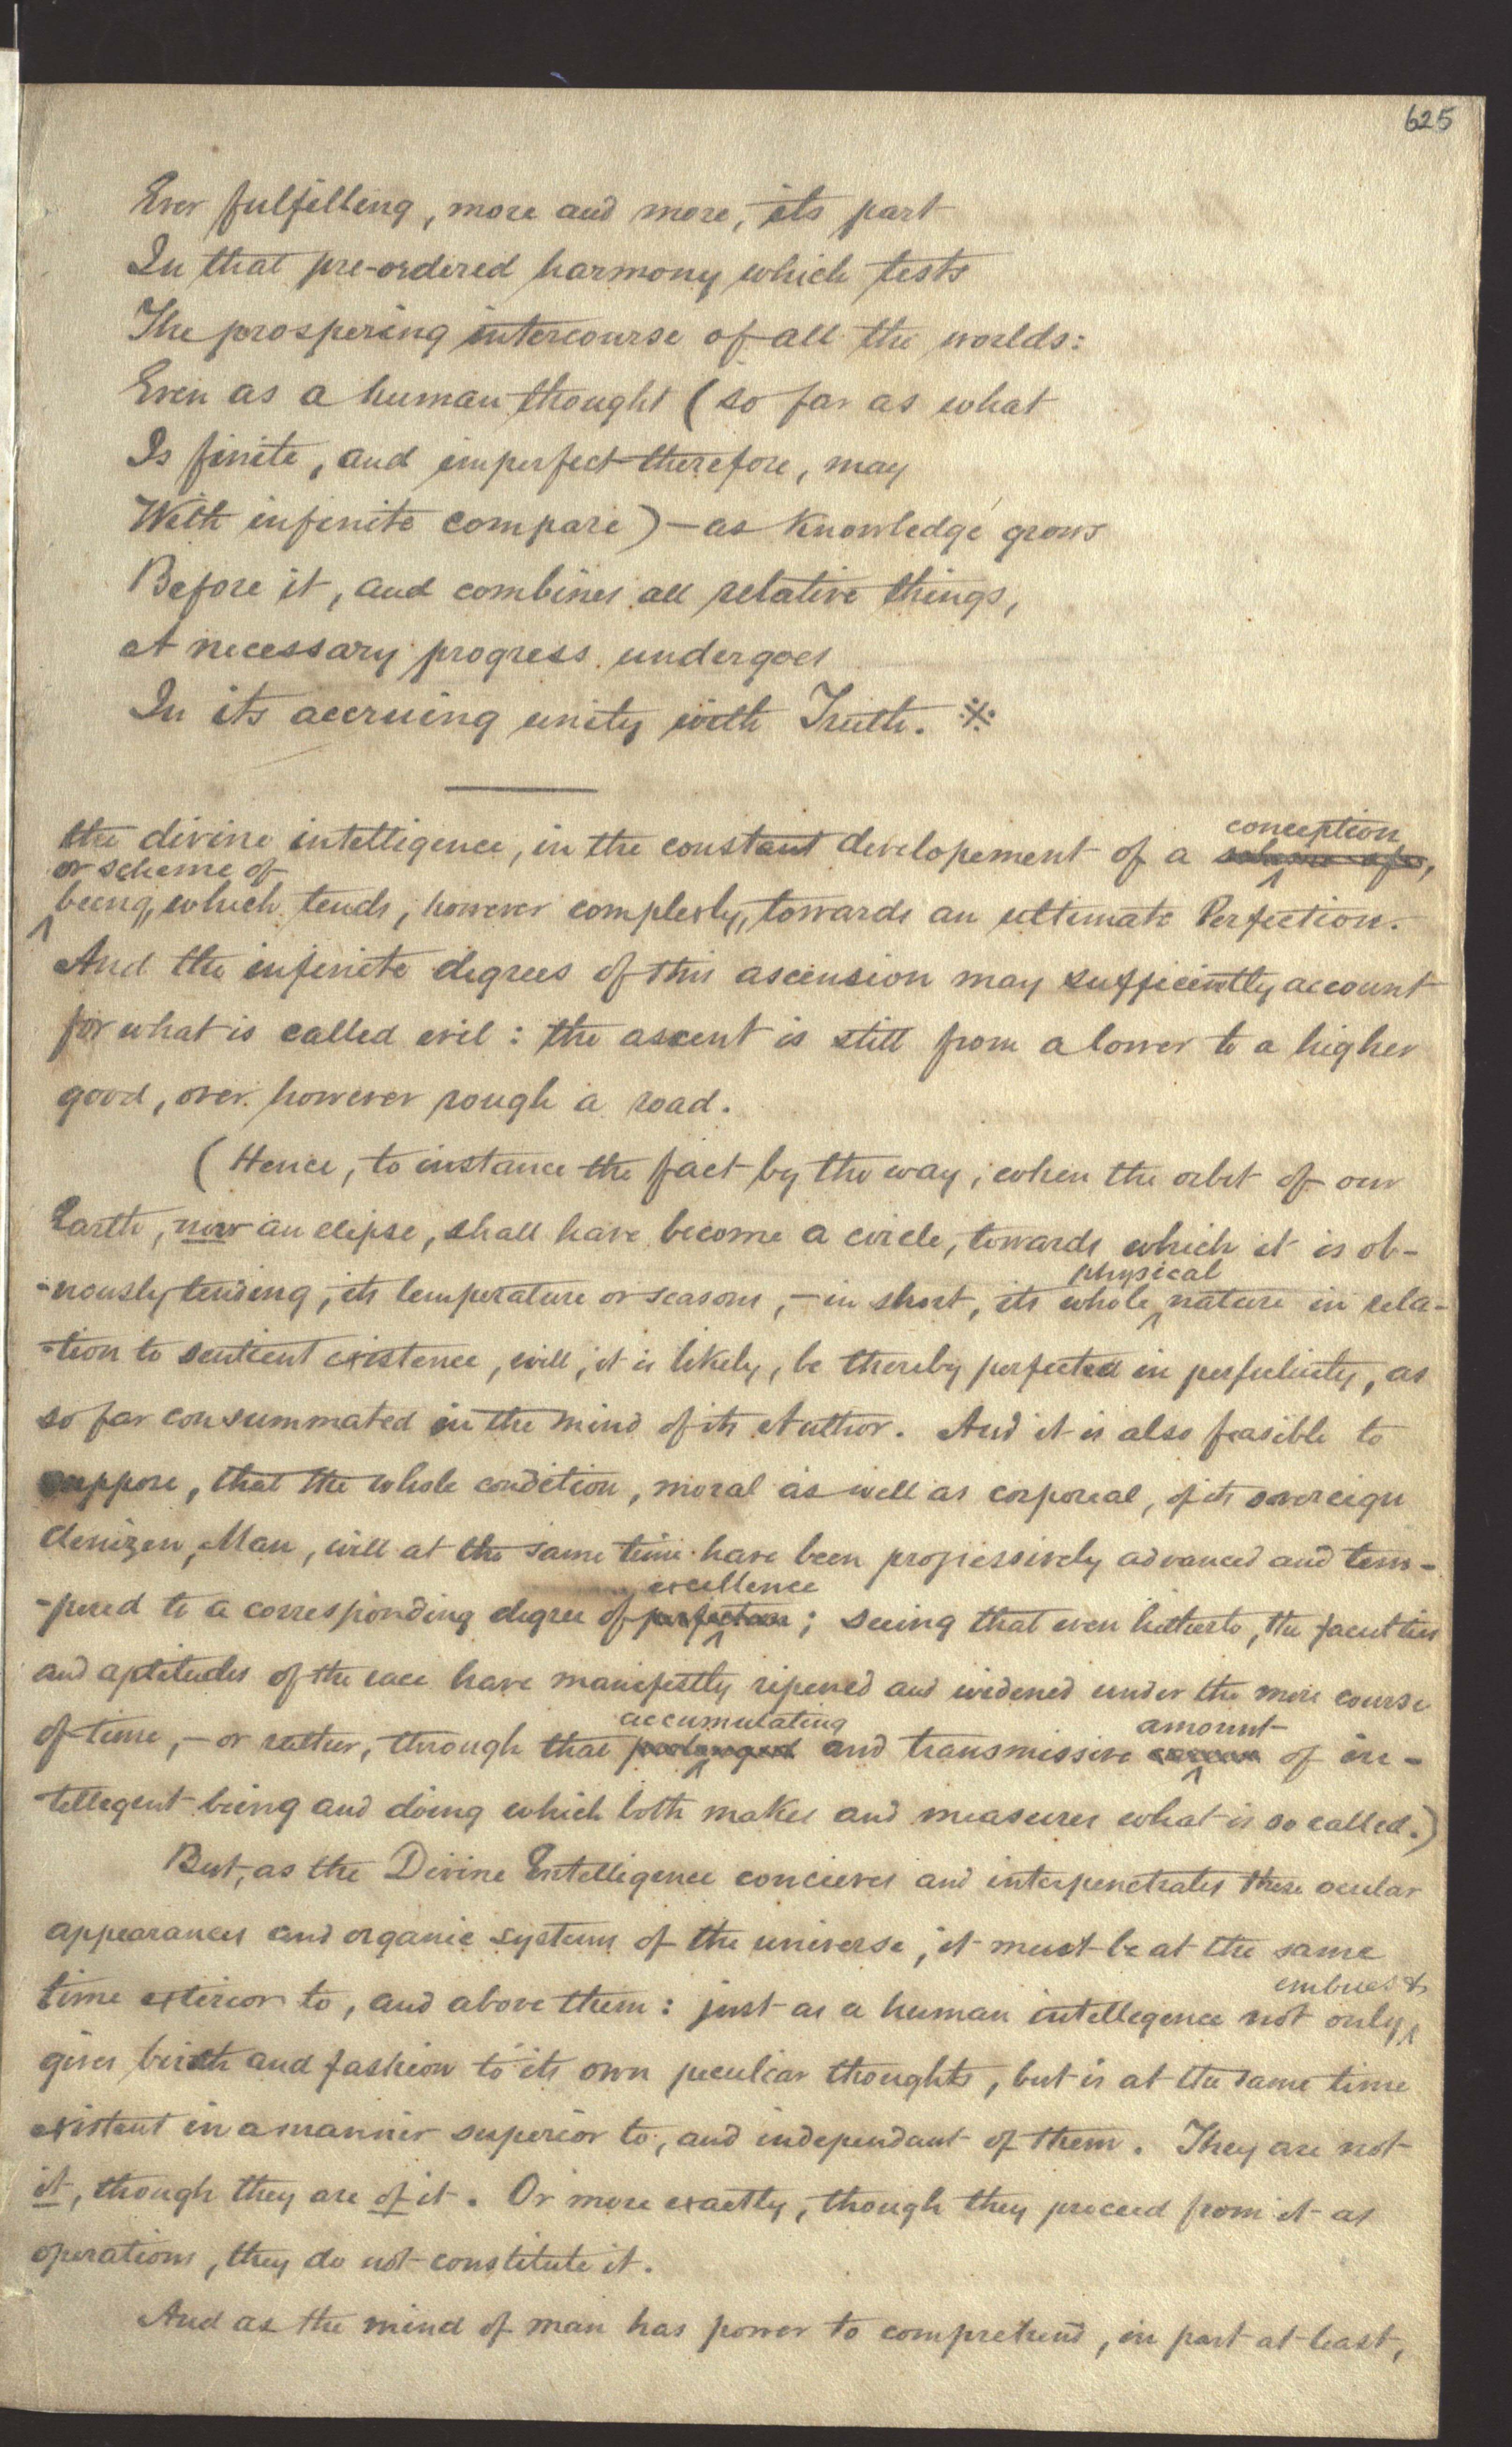 625
Ever fulfilling, more and more, its part
In that pre-ordered harmony which tests
The prospering intercourse of all the worlds:
Even as a human thought (so far as what
Is finite, and imperfect therefore, may
With infinite compare) — as knowledge grows
Before it, and combines all relative things,
A necessary progress undergoes
In its accruing unity with Truth. ※
conception
the divine intelligence, in the constant developement of a scheme of,
or scheme of
being, which tends, however complexly, towards an ultimate Perfection.
And the infinite degrees of this ascension may sufficiently account
for what is called evil: the ascent is still from a lower to a higher
good, over however rough a road.
(Hence, to instance the fact by the way, when the orbit of our
Earth, now an elipse, shall have become a circle, towards which it is ob-
physical
-viously tending, its temperature or seasons, — in short, its whole nature in rela-
-tion to sentient existence, will, it is likely, be thereby perfected in perfectivity, as
so far consummated in the mind of its Author. And it is also feasible to
suppose, that the whole condition, moral as well as corporeal, of its sovereign
denizen, Man, will at the same time have been progressively advanced and tem-
excellence
-pered to a corresponding degree of perfection; seeing that even hitherto, the faculties
and aptitudes of the race have manifestly ripened and widened under the mere course
accumulating amount
of time, — or rather, through that prolonged and transmissive of in-
-telligent being and doing which both makes and measures what is so called.)
But, as the Divine Intelligence concieves and interpenetrates these ocular
appearances and organic systems of the universe, it must be at the same
embues &
time exterior to, and above them: just as a human intellegence not only
gives birth and fashion to its own peculiar thoughts, but is at the same time
existent in a manner superior to, and independant of them. They are not
it, though they are of it. Or more exactly, though they proceed from it as
operations, they do not constitute it.
And as the mind of man has power to comprehend, in part at least,